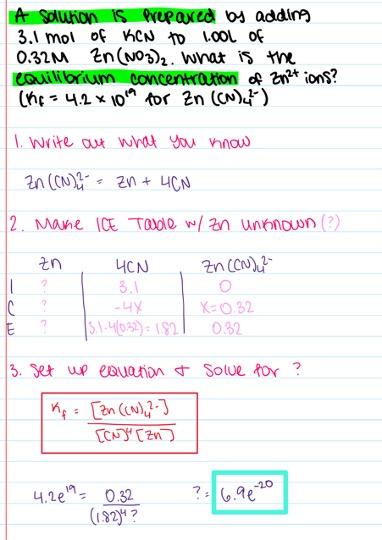 A solution is prepared by adding
3.1 mol of KCN to 1.00L of
0.32M Zn(NO3)2. What is the
equilibrium concentration of Zn2+ ions?
(Kf = 4.2 x 10^19 for Zn(CN)4^2-)
1. Write out what you know
Zn(CN)4^2- = Zn + 4CN
2. Make ICE Table w/ Zn unknown (?)
Zn 4CN Zn(CN)4^2-
I ? 3.1 0
C ? -4x x=0.32
E ? 3.1-4(0.32)=1.82 0.32
3. Set up equation & solve for ?
Kf = [Zn(CN)4^2-]
[CN]^4 [Zn]
4.2e^19 = 0.32 ?= 6.9e^-20
(1.82)^4 ?